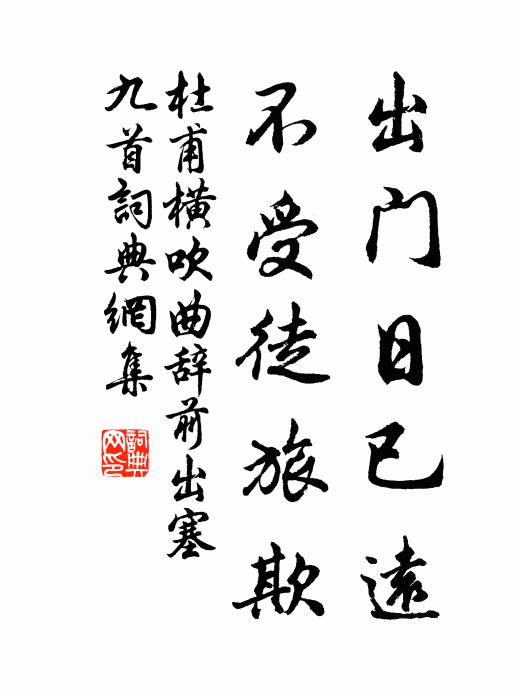 出门日已遠
不受徒旅欺
杜甫橫吹曲辞前出塞
九首詞典網集
詞典
网印